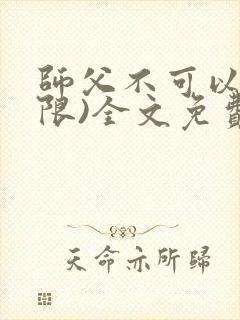 師父不可以
限)全文免費
天命亦所歸